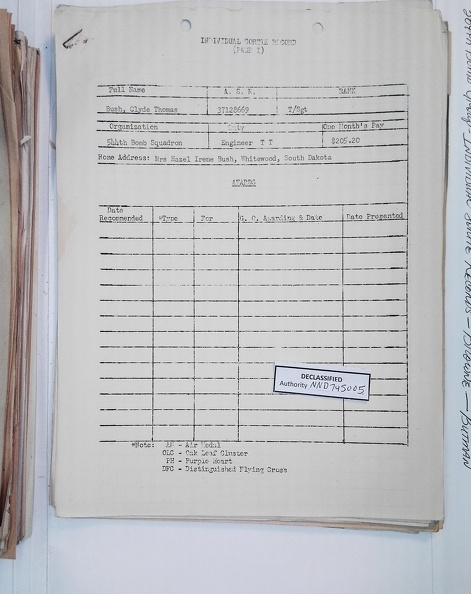 INDIVIDUAL SORTIE RECORD
(PAGE I)
Full Name A. S. N. RANK
Bush, Clyde Thomas 37128669 T/Sgt
Organization Duty One Month's Pay
544th Bomb Squadron Engineer T T $205.20
Home Address: Mrs Hazel Irene Bush, Whitewood, South Dakota
AWARDS
Date
Recommended *Type For G. O. Awarding & Date Date Presented
DECLASSIFIED
Authority NND 745005
*Note: AM - Air Medal
OLC - Oak Leaf Cluster
PH - Purple Heart
DFC - Distinguished Flying Cross
Individual Sortie Records